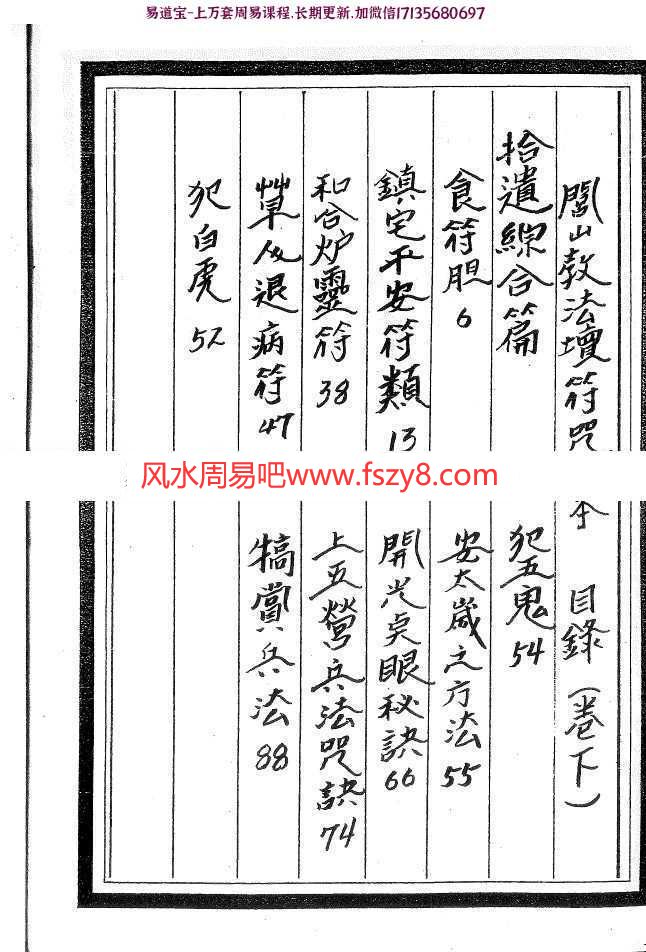 易道宝-上万套周易课程.长期更新.加微信17135680697
閭山教法壇符咒 本 目錄（卷下）
拾遺綜合篇
犯五鬼 54
食符胆 6
安太歲之方法 55
鎮宅平安符類 13
開光点眼秘訣 66
和合炉靈符 38
上五營兵法咒訣 74
草人退病符 47
犒賞兵法 88
犯白虎 52
风水周易吧www.fszy8.com